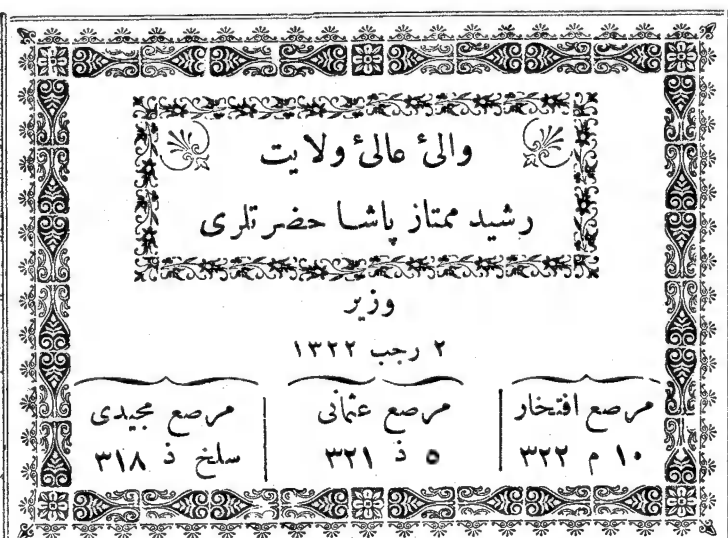 والئ عالئ ولايت
رشيد ممتاز پاشا حضرتلری
وزير
٢ رجب ١٣٢٢
مرصع افتخار
١٠ م ٣٢٢
مرصع عثمانی
٥ ذ ٣٢١
مرصع مجيدی
سلخ ذ ٣١٨